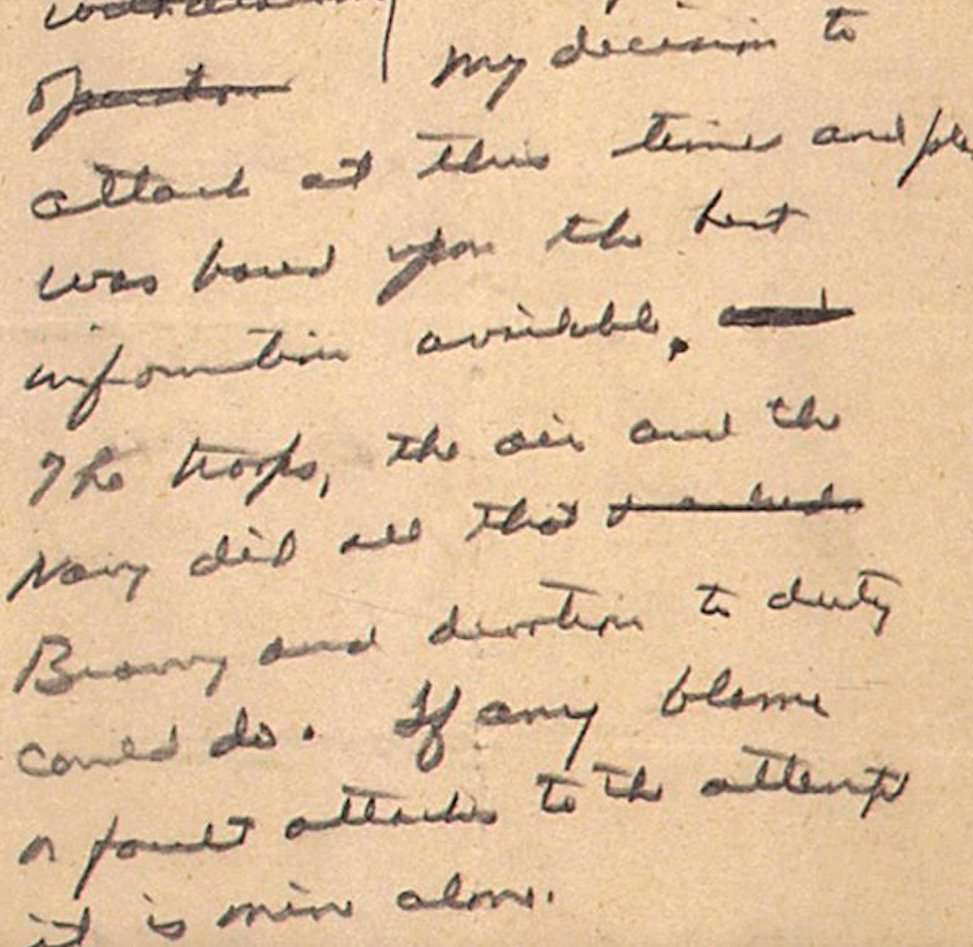 My decision to
attack at this time and
was based upon the best
information available,
The troops, the air and the
Navy did all that
Bravery and devotion to duty
could do. If any blame
or fault attaches to the attempt
it is mine alone.